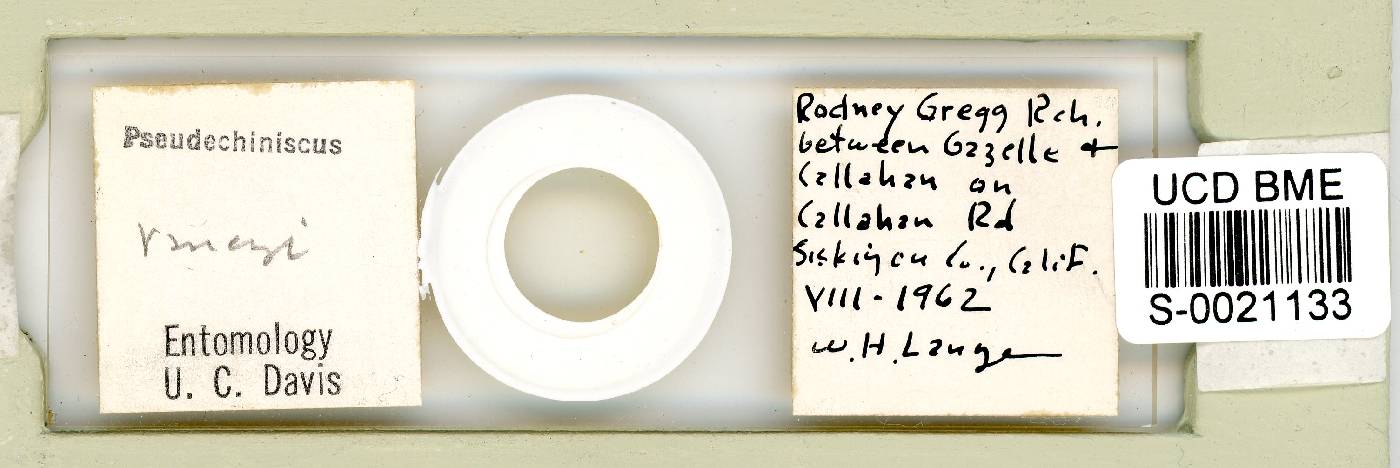 Pseudechiniscus
Entomology
U. C. Davis
Rodney Gregg Rch.
between Gazelle +
Callahan on
Callahan Rd
Siskiyou Co., Calif.
VIII - 1962
W. H. Lange
UCD BME
S-0021133